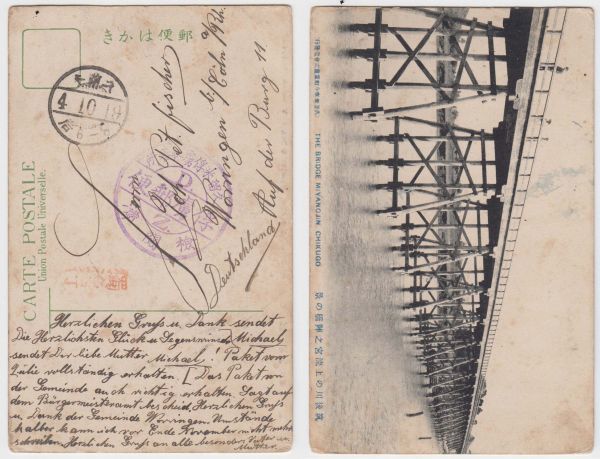 郵便はかき
CARTE POSTALE
Union Postale Universelle.
4.10.19
Herrn
Joh. Pet. Fischer
Worringen b/Cöln a/Rh.
Auf der Burg 11
Deutschland
Herzlichen Gruss u. Dank sendet
Die Herzlichsten Glück u. Segenswünsche Michael
sendet Dir liebe Mutter Michael! Paket vom
Julie vollständig erhalten. Das Paket von
der Gemeinde auch richtig erhalten. Sagt auf
dem Bürgermeisteramt bescheid. Herzlichen Gruss
u. Dank der Gemeinde Worringen. Umstände
halber kann ich vor Ende November nicht mehr
schreiben. Herzlichen Gruss an alle besonders Vater u.
Mutter.
THE BRIDGE MIYANOJIN CHIKUGO
筑後川の上流宮之陣橋の景